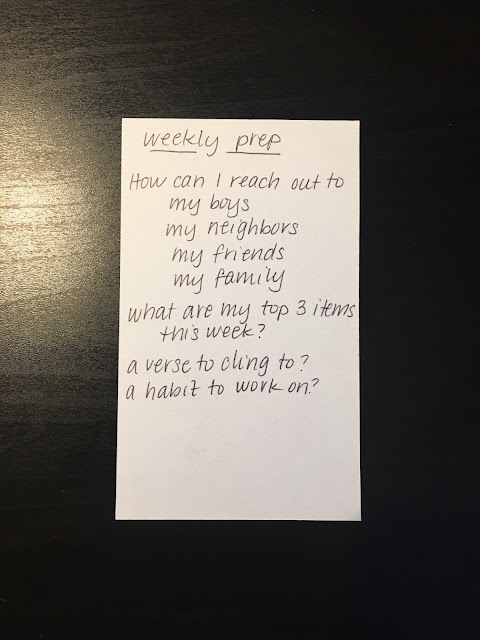 weekly prep
How can I reach out to
my boys
my neighbors
my friends
my family
what are my top 3 items
this week?
a verse to cling to?
a habit to work on?